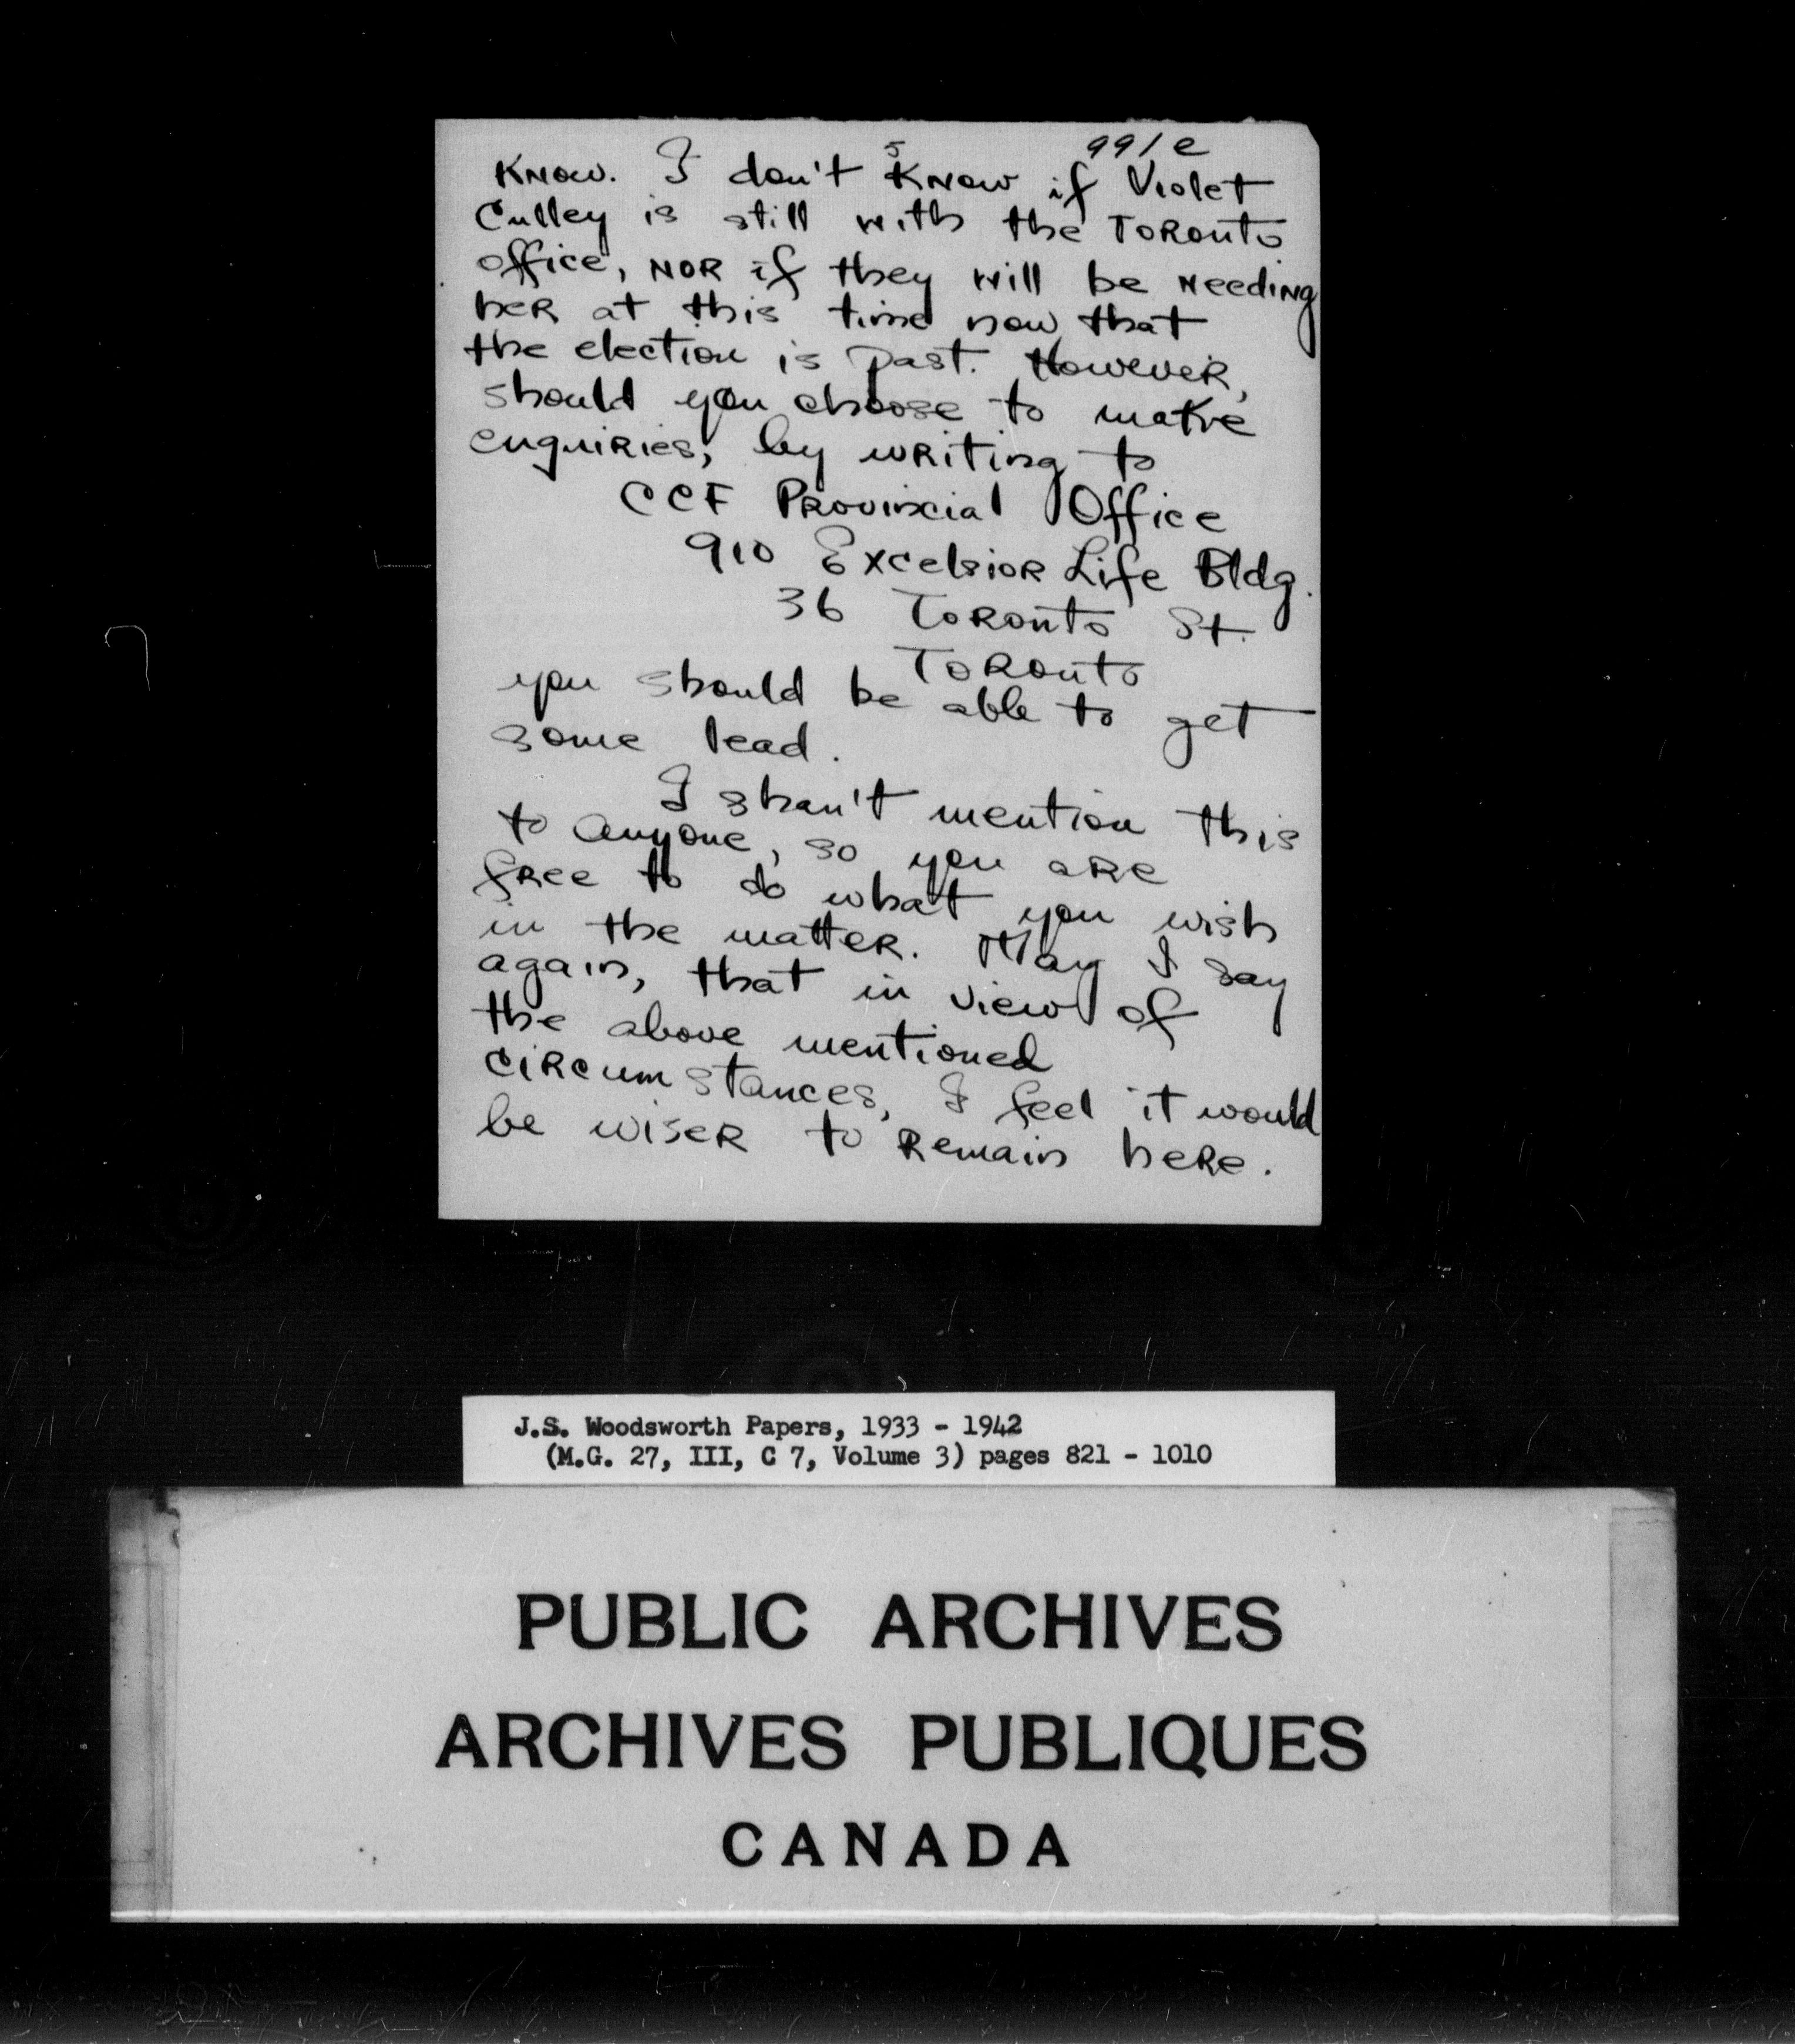 991e
5
Know. I don't Know if Violet
Culley is still with the Toronto
office, nor if they will be needing
her at this time now that
the election is past. However,
should you choose to make
enquiries, by writing to
CCF Provincial Office
910 Excelsior Life Bldg.
36 Toronto St.
Toronto
you should be able to get
some lead.
I shan't mention this
to anyone, so you are
free to do what you wish
in the matter. May I say
again, that in view of
the above mentioned
circumstances, I feel it would
be wiser to remain here.
J.S. Woodsworth Papers, 1933 - 1942
(M.G. 27, III, C 7, Volume 3) pages 821 - 1010
PUBLIC ARCHIVES
ARCHIVES PUBLIQUES
CANADA